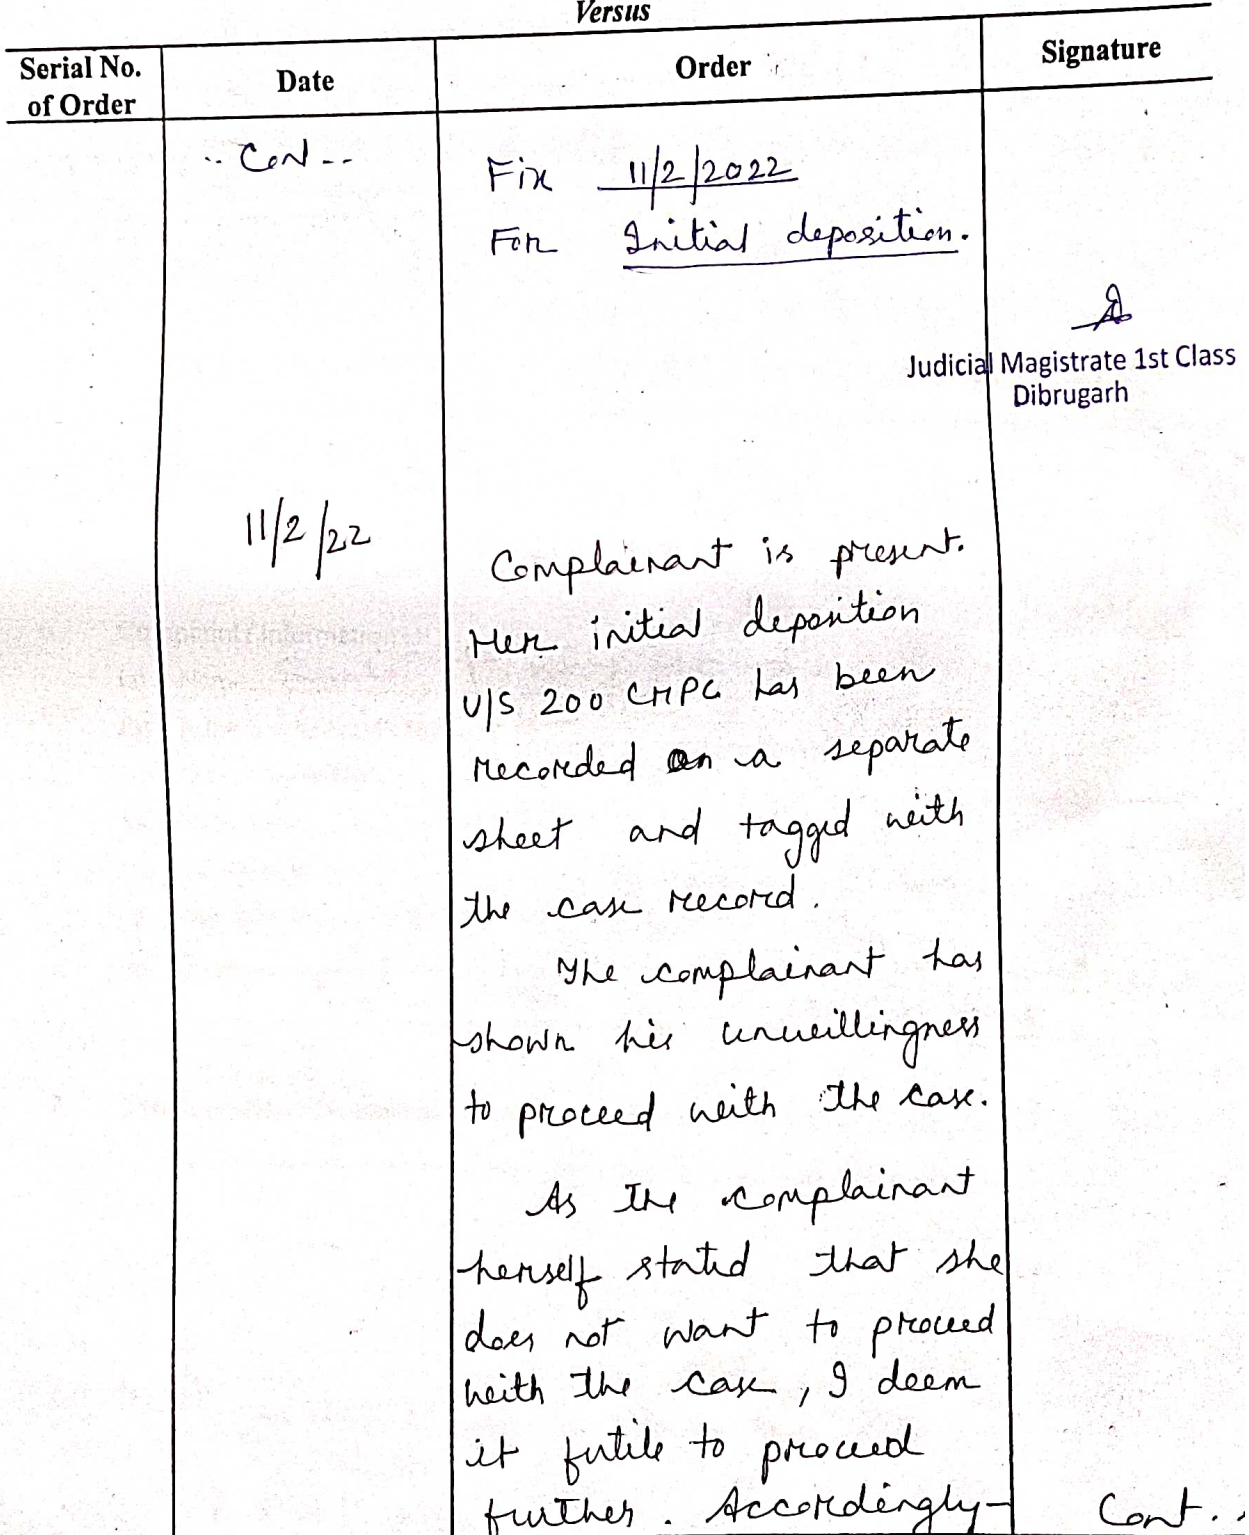 Versus
Serial No.
of Order
Date
Order
Signature
.. Con --
Fix 11/2/2022
For Initial deposition.
Judicial Magistrate 1st Class
Dibrugarh
11/2/22
Complainant is present.
Her initial deposition
U/S 200 CrPC has been
recorded on a separate
sheet and tagged with
the case record.
The complainant has
shown his unwillingness
to proceed with the case.
As the complainant
herself stated that she
does not want to proceed
with the case, I deem
it futile to proceed
further. Accordingly-
Cont..